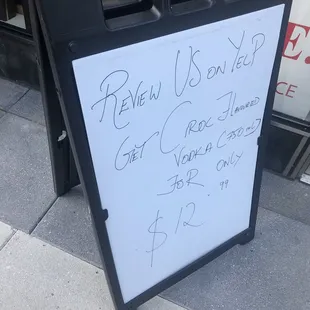 Review Us on Yelp
Get Ciroc Flavored
Vodka (750 ml)
For only
$12.99
E.
CE